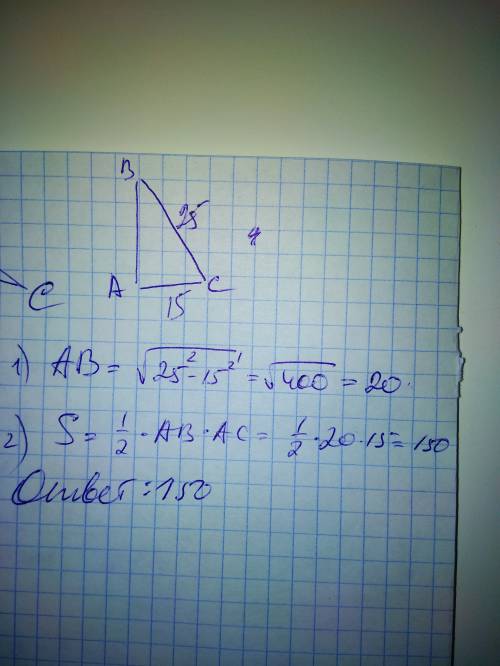 B
25
ч
A
C
C
15
1) AB = √25² - 15² = √400 = 20.
2) S = 1/2 · AB · AC = 1/2 · 20 · 15 = 150
Ответ: 150